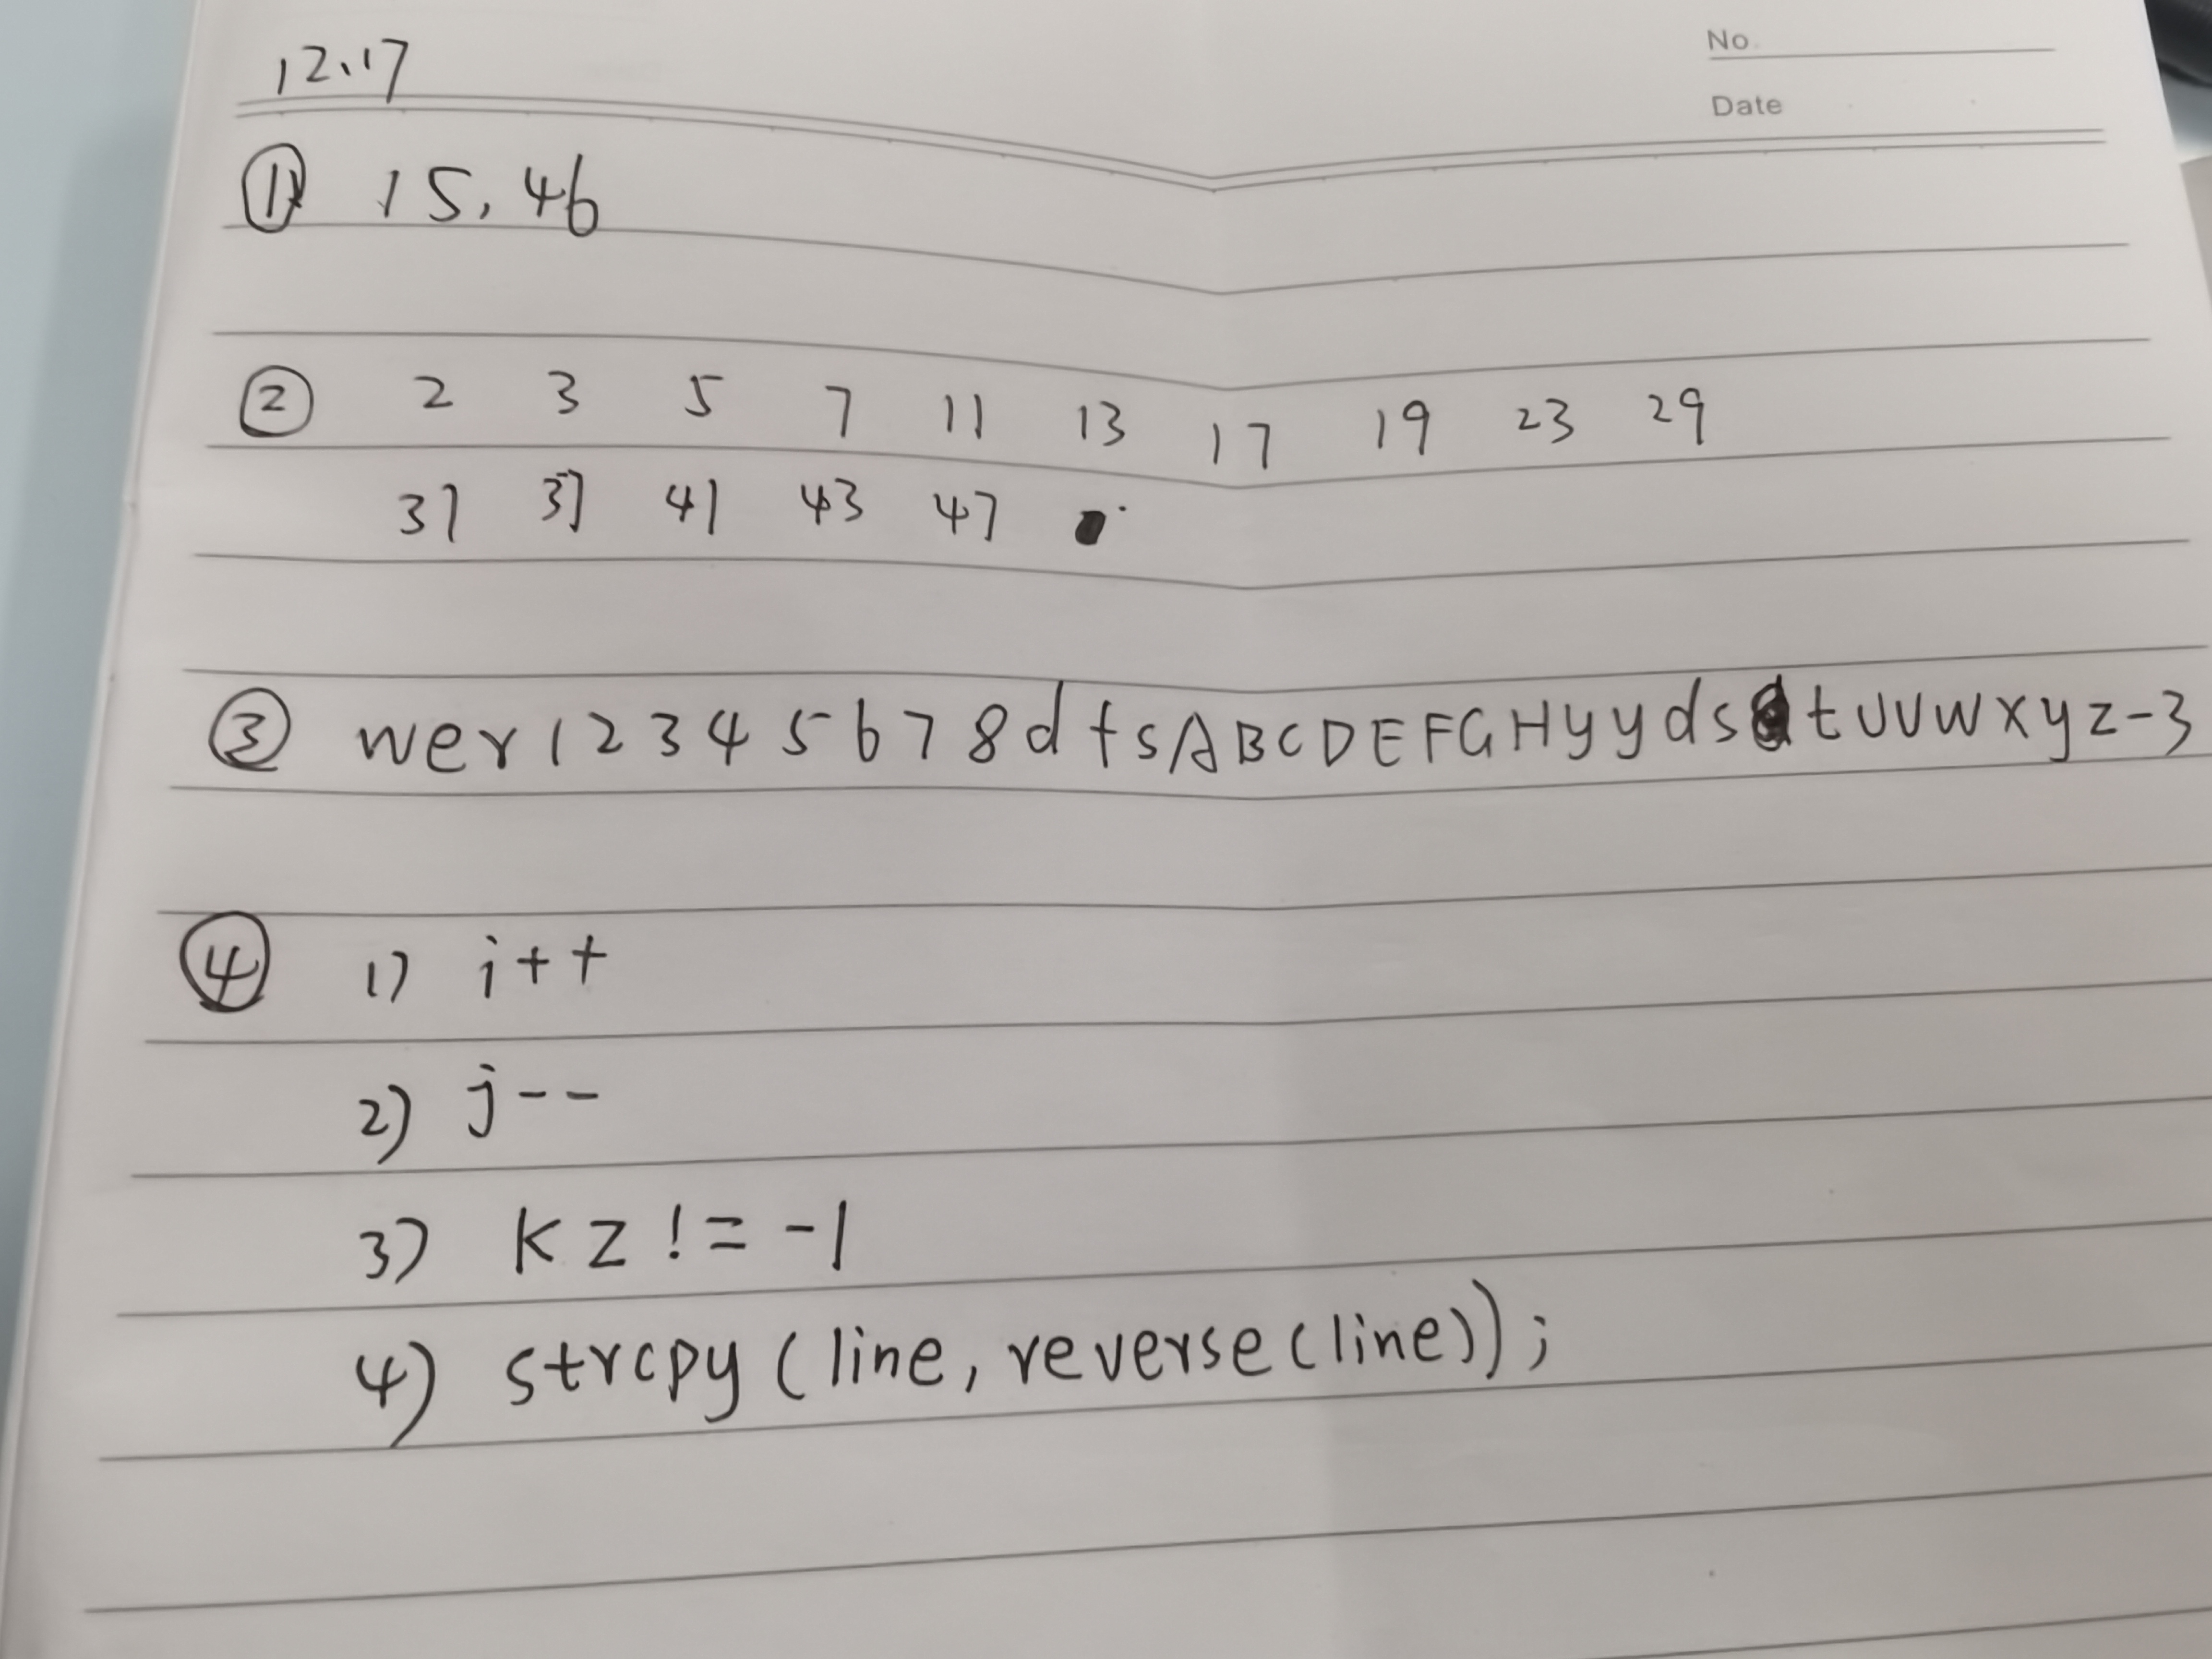 No.
12.17
Date
① 15,46
② 2 3 5 7 11 13 17 19 23 29
31 37 41 43 47
③ wer12345678dfsABCDEFGHyydstuvwxyz-3
④ 1) i++
2) j--
3) kz!=-1
4) strcpy(line,reverse(line));